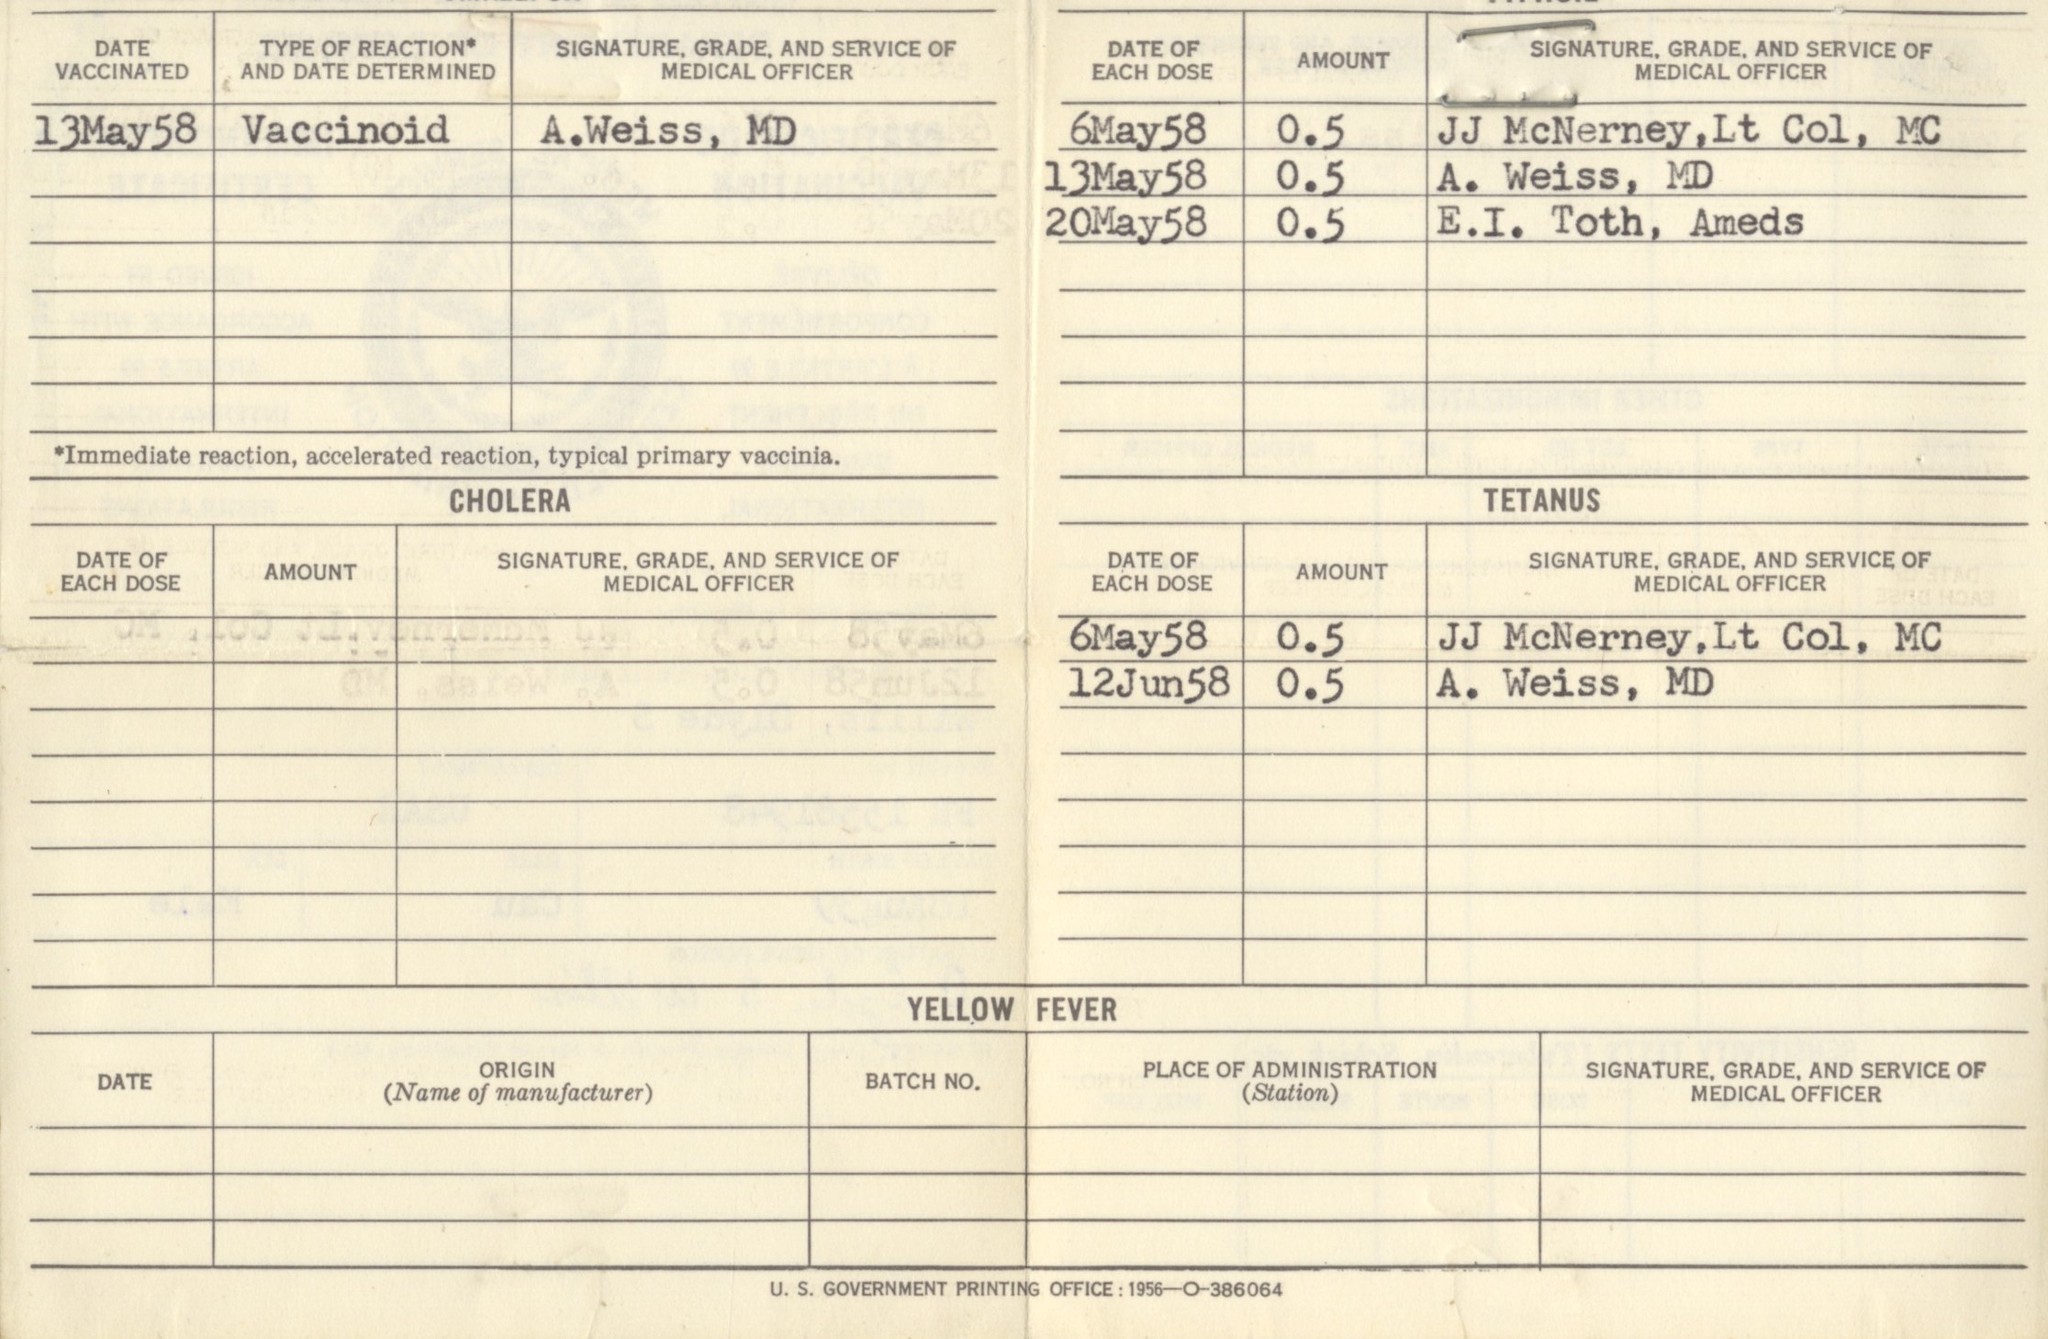 DATE VACCINATED
TYPE OF REACTION* AND DATE DETERMINED
SIGNATURE, GRADE, AND SERVICE OF MEDICAL OFFICER
13May58 Vaccinoid A.Weiss, MD
*Immediate reaction, accelerated reaction, typical primary vaccinia.
DATE OF EACH DOSE
AMOUNT
SIGNATURE, GRADE, AND SERVICE OF MEDICAL OFFICER
6May58 0.5 JJ McNerney,Lt Col, MC
13May58 0.5 A. Weiss, MD
20May58 0.5 E.I. Toth, Ameds
CHOLERA
DATE OF EACH DOSE
AMOUNT
SIGNATURE, GRADE, AND SERVICE OF MEDICAL OFFICER
TETANUS
DATE OF EACH DOSE
AMOUNT
SIGNATURE, GRADE, AND SERVICE OF MEDICAL OFFICER
6May58 0.5 JJ McNerney,Lt Col, MC
12Jun58 0.5 A. Weiss, MD
YELLOW FEVER
DATE
ORIGIN
(Name of manufacturer)
BATCH NO.
PLACE OF ADMINISTRATION
(Station)
SIGNATURE, GRADE, AND SERVICE OF MEDICAL OFFICER
U. S. GOVERNMENT PRINTING OFFICE : 1956—O-386064